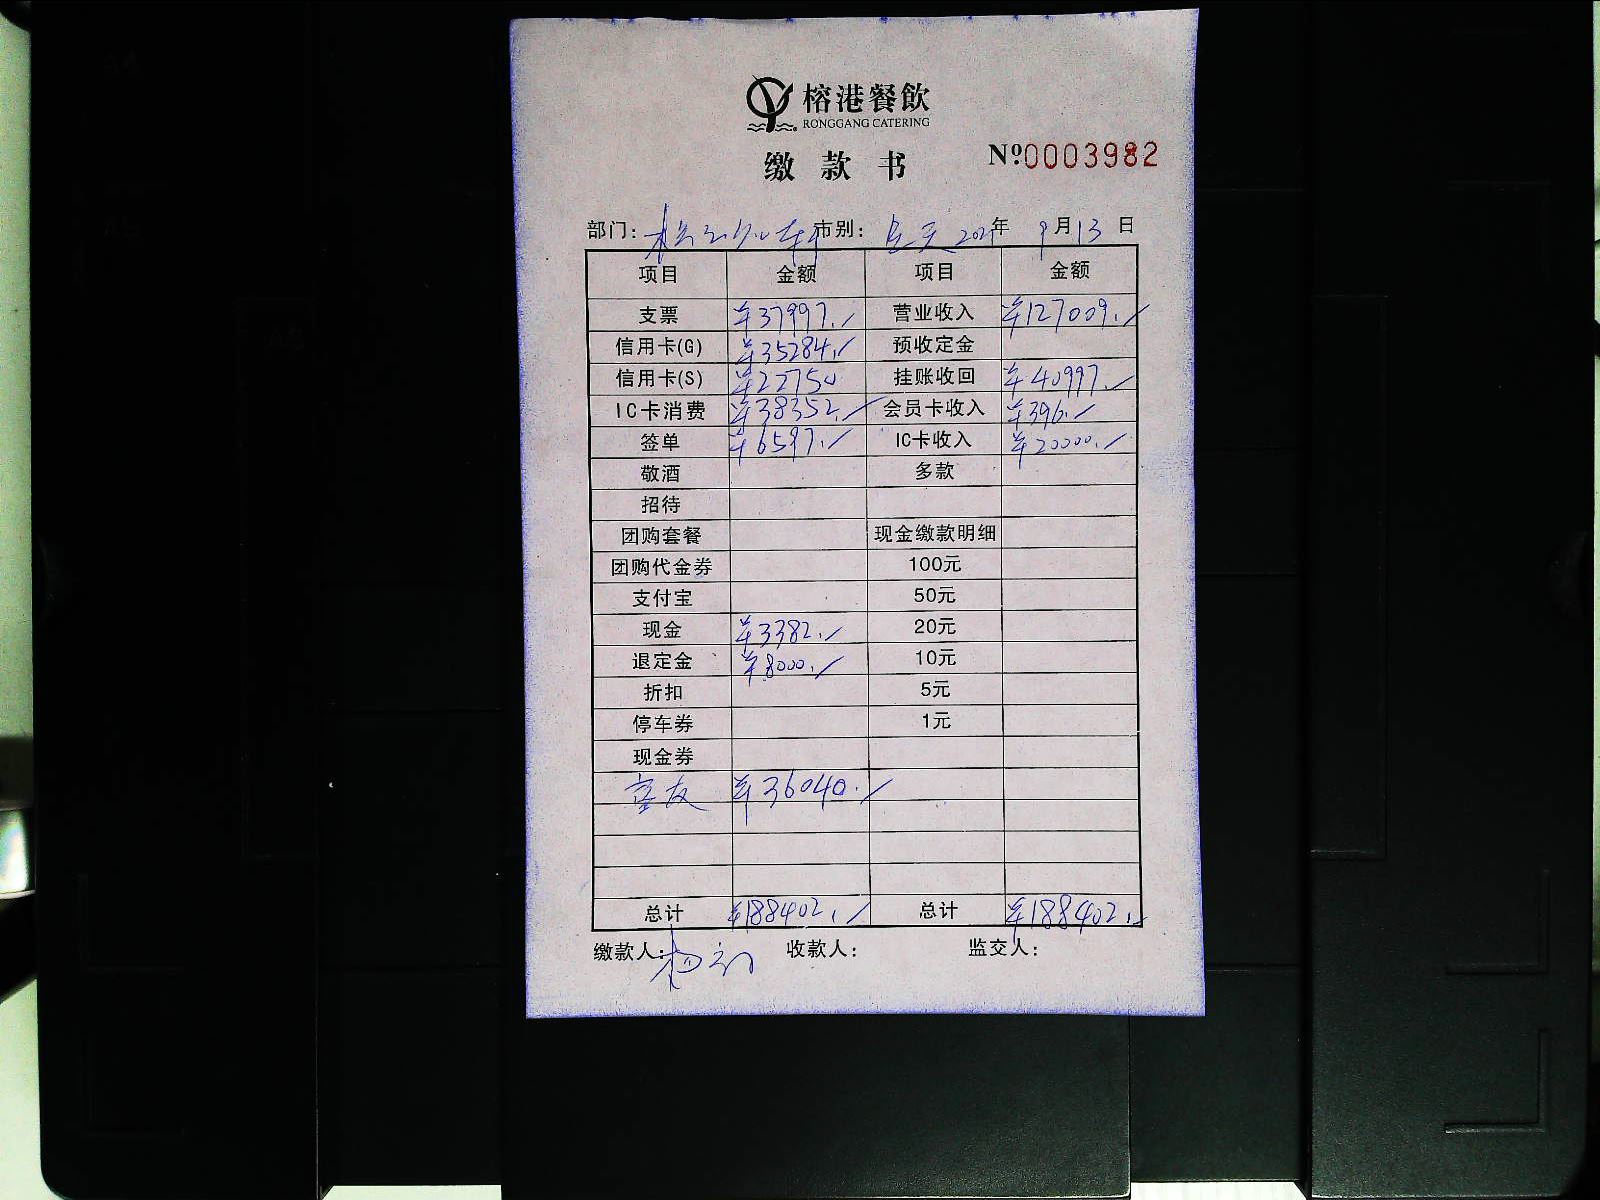 榕港餐飲
RONGGANG CATERING
缴款书 №0003982
部门： 市别：全天 2021年 9月13日
项目 金额 项目 金额
支票 ¥37997. 营业收入 ¥127009.
信用卡(G) ¥35284. 预收定金
信用卡(S) ¥22750 挂账收回 ¥40997.
IC卡消费 ¥38352. 会员卡收入 ¥396.
签单 ¥6597. IC卡收入 ¥20000.
敬酒 多款
招待
团购套餐 现金缴款明细
团购代金券 100元
支付宝 50元
现金 ¥3382. 20元
退定金 ¥8000. 10元
折扣 5元
停车券 1元
现金券
¥36040.
总计 ¥188402. 总计 ¥188402.
缴款人： 收款人： 监交人：